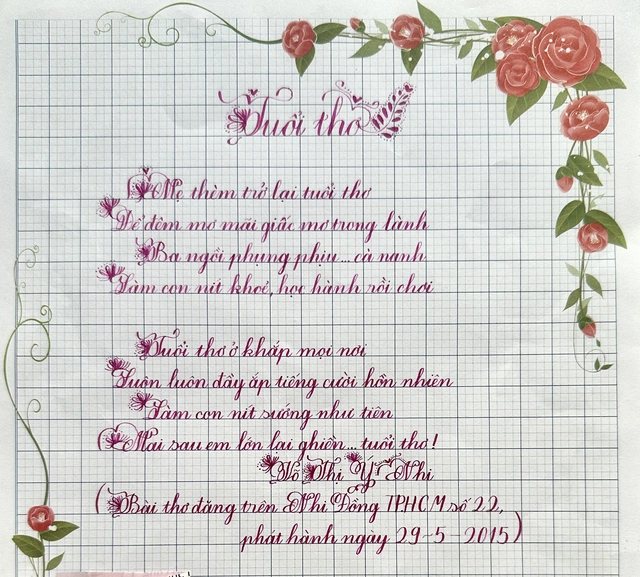 Tuổi thơ
Mẹ thèm trở lại tuổi thơ
Để đêm mơ mãi giấc mơ trong lành
Ba ngồi phụng phịu... cà nanh
Làm con nít khoẻ, học hành rồi chơi
Tuổi thơ ở khắp mọi nơi
Luôn luôn đầy ắp tiếng cười hồn nhiên
Làm con nít sướng như tiên
(Mai sau em lớn lại ghiền... tuổi thơ!
Võ Thị Ý Nhi
(Bài thơ đăng trên Nhi Đồng TPHCM số 22,
phát hành ngày 29-5-2015)